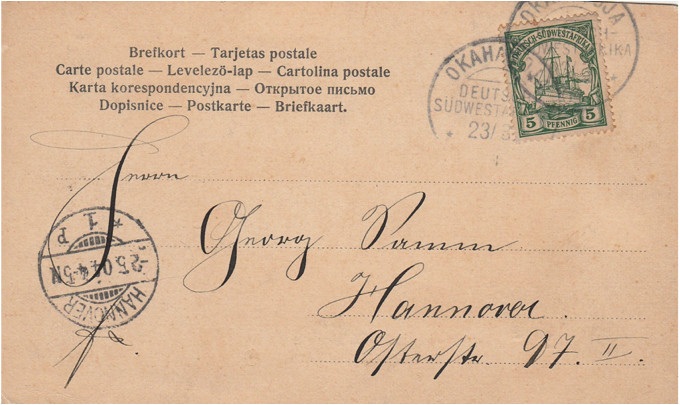 Brefkort — Tarjetas postale
Carte postale — Levelező-lap — Cartolina postale
Karta korespondencyjna — Открытое письмо
Dopisnice — Postkarte — Briefkaart.
OKAHA
DEUTS
SÜDWESTA
23/
JA
EIKA
SCH-SÜDWESTAFRIKA
5 PFENNIG 5
Herrn
Georg Samm
Hannover.
Osterstr. 97. II.
HANNOVER
* 1 P
-2.5.04. 4-5N